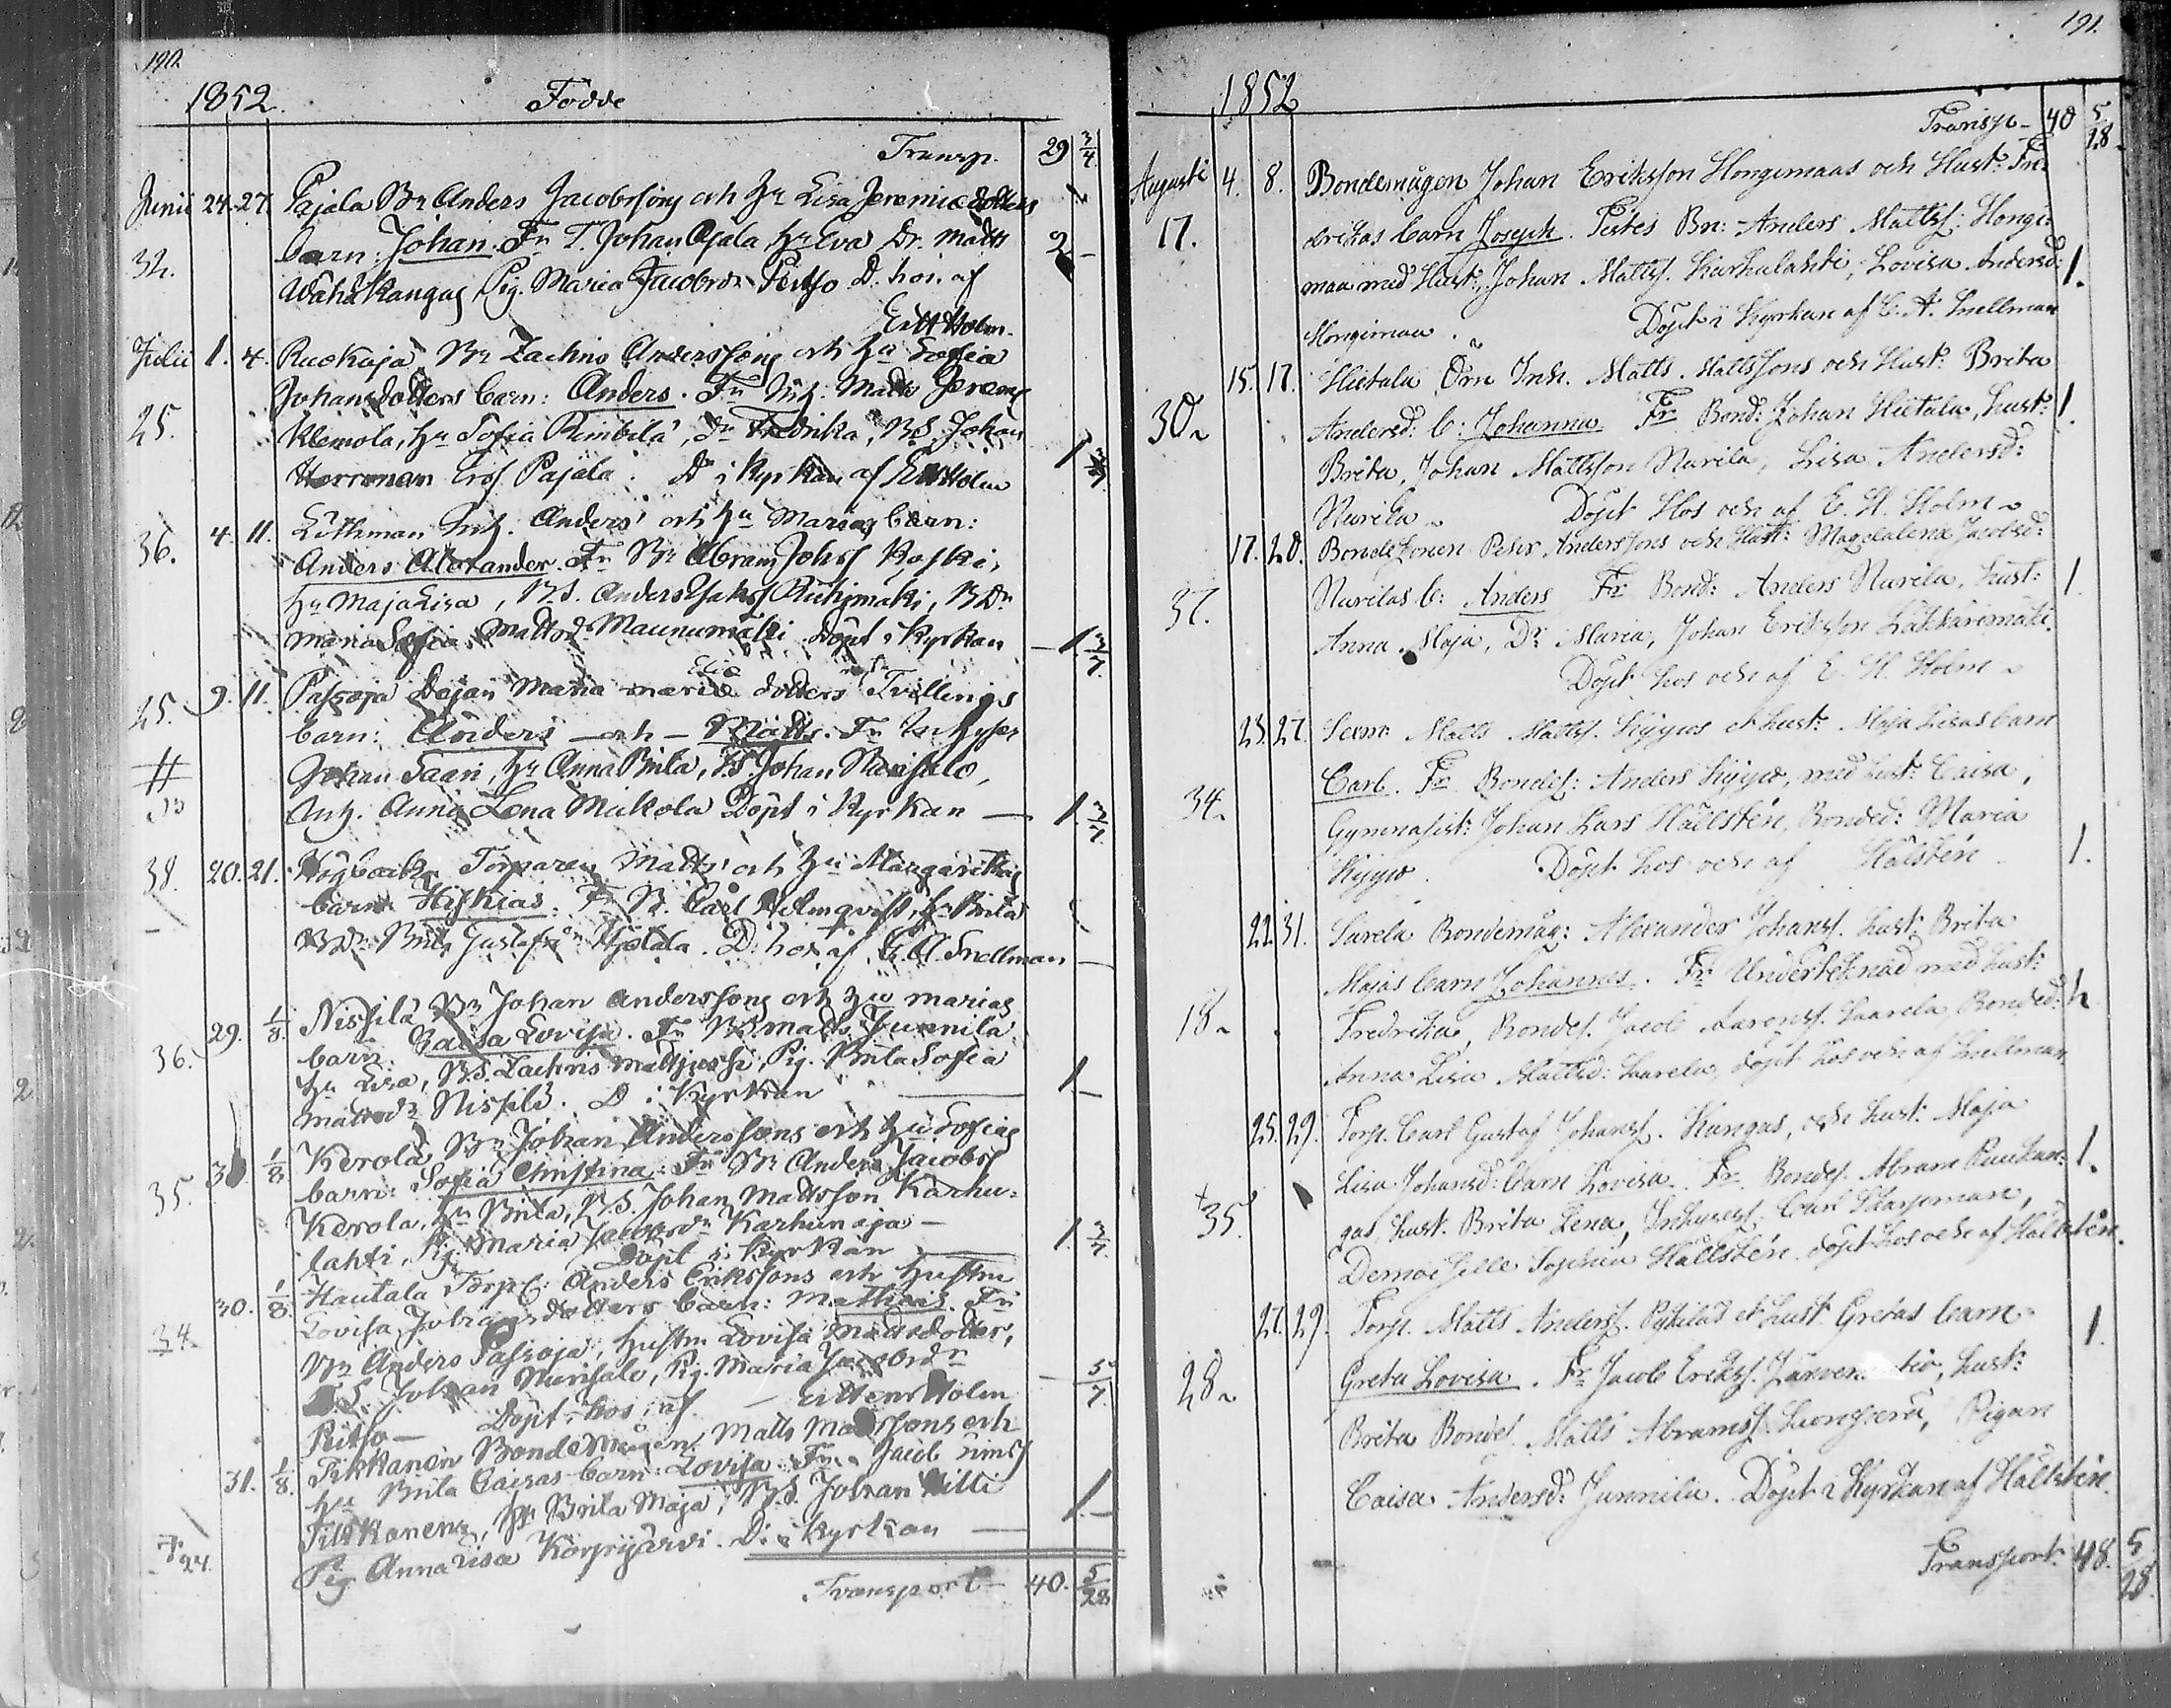 190.
1852. Födde
Transp. 29 3/4
Junii 24. 27. Pajala Bn Anders Jacobssons och Hu Lisa Jeremiædotters
barn: Johan. Fn T. Johan Ojala, Hu Eva Dr. Matts
32. 2 -
Wähäkangas, Pig. Maria Jacobsdr D. hos af
Holm.
Julii 1. 4. Ruokoja Bn Zachris Anderssons och Hu Sofia
Johansdotters barn: Anders. Fn Inh. Matts Jerem
25. Klemola, Hu Sofia Rimbilä, Fredrika, B.S. Johan
Herronen Pajala. D. i Kyrkan af Holm
4. 11. Lithman Inh. Anders och Hu Marias barn:
36. Anders Alexander. Fn Bn Abram Johss Koski,
Hu Maja Lisa, B.S. Anders Ruhimäki, B.Dr
Maria Sofia Mattsdr Maunumäki Döpt i Kyrkan 1. 3/7.
9. 11. Passoja Dejan Maria dotters Tvillings
25. barn: Anders - och - Matts. Fn Inhyses
Johan Saari, Hu Anna Brita, B.S. Johan Nurisalo,
Inh. Anna Lena Mickola Döpt i Kyrkan - 1. 3/7.
38. 20. 21. Högbacka Torparen Matts och Hu Margarethas
barn Hiskias. Fn B. Carl Holmqvist, Hu Brita
B.Dr. Brita Gustafsdr D. hos af C. A. Snellman
29. 1/8. Nissilä Bn Johan Anderssons och Hu Marias
barn: Caisa Lovisa. Fn Bn Matts Junnila
36. Hu Lisa, B.S. Zachris Mattjussi, Pig. Brita Sofia
Mattsdr Nissilä. D. i Kyrkan 1. -
1/8 Kerola Bn Johan Anderssons och Hu Sofias
35. barn: Sofia Christina. Fn Bn Anders Jacobss
Kerola, Hu Brita, B.S. Johan Mattsson Karhu-
lahti, Pig. Maria Jacobsdr Karhunoja -
Döpt i Kyrkan 1. 3/7.
30. 1/8. Hautala Torp: Anders Erikssons och Hustru
Lovisa Johansdotters barn: Mathias. Fn
34. Bn Anders Passoja, hustru Lovisa Mattsdotter,
B.S. Johan Nurisalo, Pig. Maria Jacobsdr 5/7.
Ritso - Döpt hos, af - Holm
31. 1/8. Tikkanen Bondemågen Matts Mattssons och
Hu Brita Caisas barn: Lovisa. Fn Jacob Simss
Tikkanen, Hu Brita Maja, B.S. Johan Kitti 1. -
24. Pig Anna Lisa Körpijärvi. D. i Kyrkan -
Transport - 40. 5/28
191.
1852
Transp - 40 5/28.
Augusti 4. 8. Bondemågen Johan Eriksson Hongimaas och Hust: Fre-
17. drikas barn Joseph. Testes Bn: Anders Mattss: Hongi-
maa med Hust:, Johan Mattss. Karhulahti, Lovisa Andersd: 1.
Hongimaa. Döpt i Kyrkan af C. A. Snellman
15. 17. Hietala Inh. Matts Mattssons och Hust: Brita
30. Andersd: b: Johanna Fr Bond: Johan Hietala, hust: 1.
Brita, Johan Mattsson Nurila, Lisa Andersd:
Nurila. Döpt Hos och af E. H. Holm
17. 20. Bondesonen Pehr Anderssons och Hust: Magdalena Jacobsd:
37. Nurilas b: Anders Fr Bond: Anders Nurila, hust: 1.
Anna Maja, Dr Maria, Johan Eriksson Lakkarimäki
Döpt hos och af E. H. Holm
23. 27. Matts Mattss. Kyyros et hust: Maja Lisas barn
34. Carl. Fr Bondes: Anders Kyyrö, med hust: Caisa,
Gymnasist: Johan Lars Hällstén, Bonded: Maria
Kyyrö. Döpt hos och af Hälstén 1.
22. 31. Sarela Bondemåg: Alexander Johanss. hust: Brita
18. Majas barn Johannes. Fr Undertecknad med hust:
Fredrika, Bondes. Jacob Aaronss. Saarela, Bonded: 1.
Anna Lisa Mattsd: Saarela, döpt hos och af Snellman.
25. 29. Torp. Carl Gustaf Johanss. Kangas, och hust: Maja
35. Lisa Johansd: barn Lovisa. Fr Bondes. Abram 1.
gas, hust. Brita Lena, Inhysess. Carl Skarpman,
Demoiselle Sophia Hällstén, döpt hos och af Hällstén.
27. 29. Torp. Matts Anderss. Pykilas et hust Gretas barn 1.
28. Greta Lovisa. Fr Jacob Erikss. hust:
Brita Bondes. Matts Abramss. Pigan
Caisa Andersd: Junnila. Döpt i Kyrkan af Hällstén.
Transport 48. 5/28